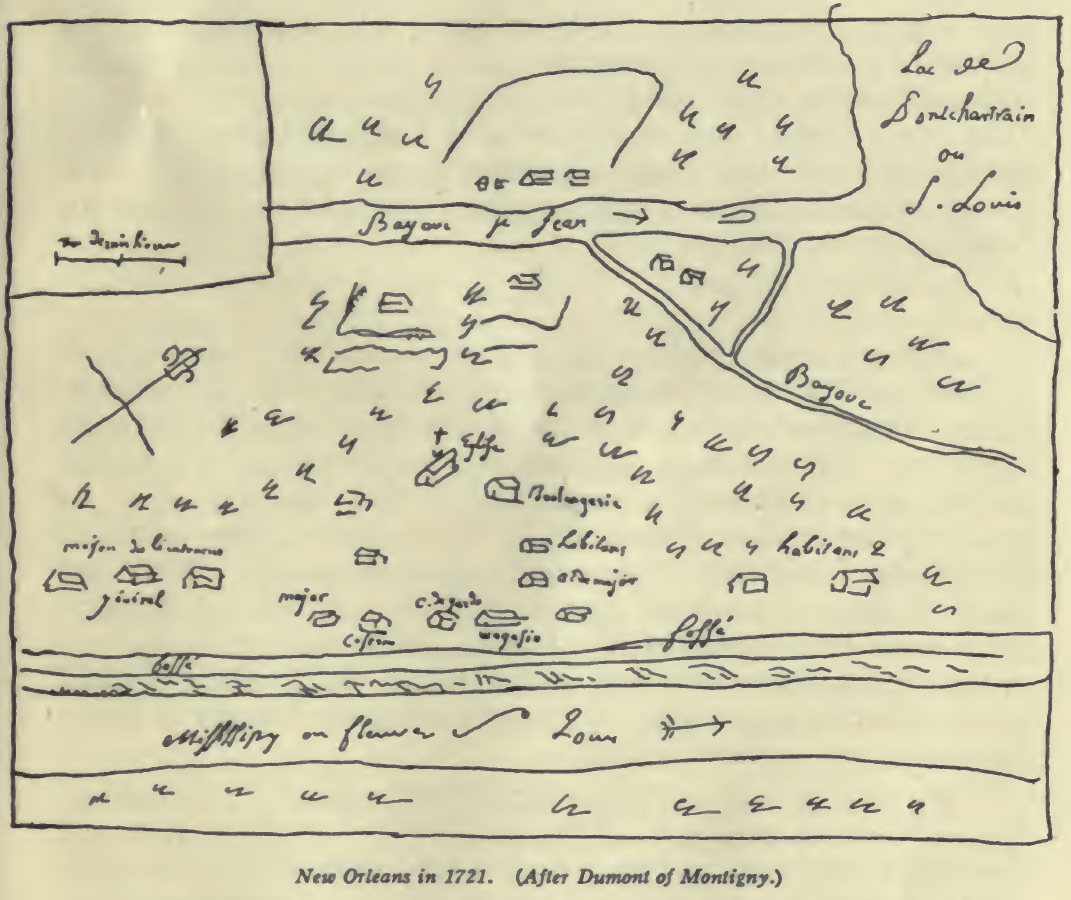 Lac de
Pontchartrain
ou
S. Louis
Bayouc St Jean
Bayouc
Eglise
Boulangerie
maison du
general
habitans
habitans 2
aidemajor
major
c. de garde
magasin
fossé
fossé
Missisipy ou fleuve S Louis
New Orleans in 1721. (After Dumont of Montigny.)